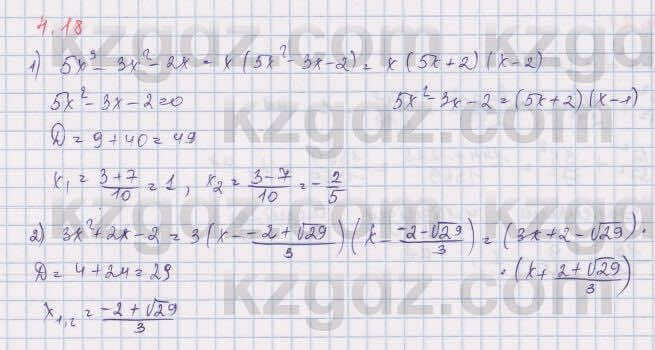 4.18
1) 5x³ - 3x² - 2x = x (5x² - 3x - 2) = x (5x + 2) (x - 2)
5x² - 3x - 2 = 0    5x² - 3x - 2 = (5x + 2) (x - 1)
D = 9 + 40 = 49
x₁ = (3+7)/10 = 1, x₂ = (3-7)/10 = -2/5
2) 3x² + 2x - 2 = 3 (x - (-2+√29)/3) (x - (-2-√29)/3) = (3x + 2 - √29) ·
D = 4 + 24 = 29    · (x + (2+√29)/3)
x₁,₂ = (-2+√29)/3
kzgdz.com